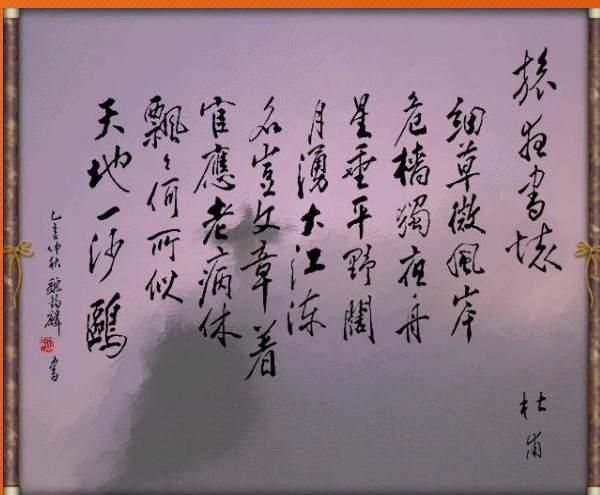 旅夜書懷
杜甫
細草微風岸
危檣獨夜舟
星垂平野闊
月湧大江流
名豈文章着
官應老病休
飄々何所似
天地一沙鷗
乙亥仲秋 魏麟 書